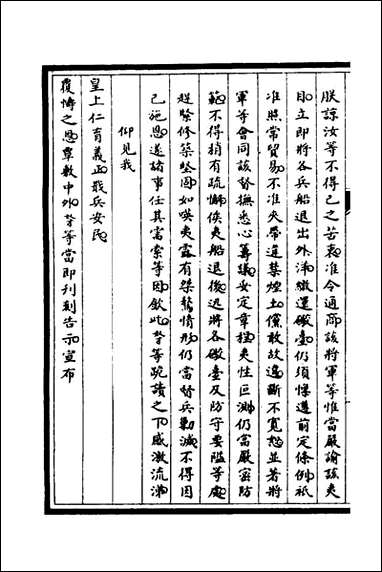 朕諒汝等不得已之苦衷准令通商該將軍等惟當嚴諭該夷
目立即將各兵船退出外洋繳還礮臺仍須懍遵前定條例祇
准照常貿易不准夾帶違禁煙土儻敢故違斷不寬恕並著將
軍等會同該督撫悉心籌議妥定章程夷性叵測仍當嚴密防
範不得稍有疏懈俟夷船退後迅將各礮臺及防守要隘等處
趕緊修築堅固如𠸄夷露有桀驁情形仍當督兵勦滅不得因
已施恩遂諸事任其需索等因欽此等跪讀之下感激流涕
仰見我
皇上仁育義正戢兵安民
覆幬之恩羣數中外等當即刊刻告示宣布